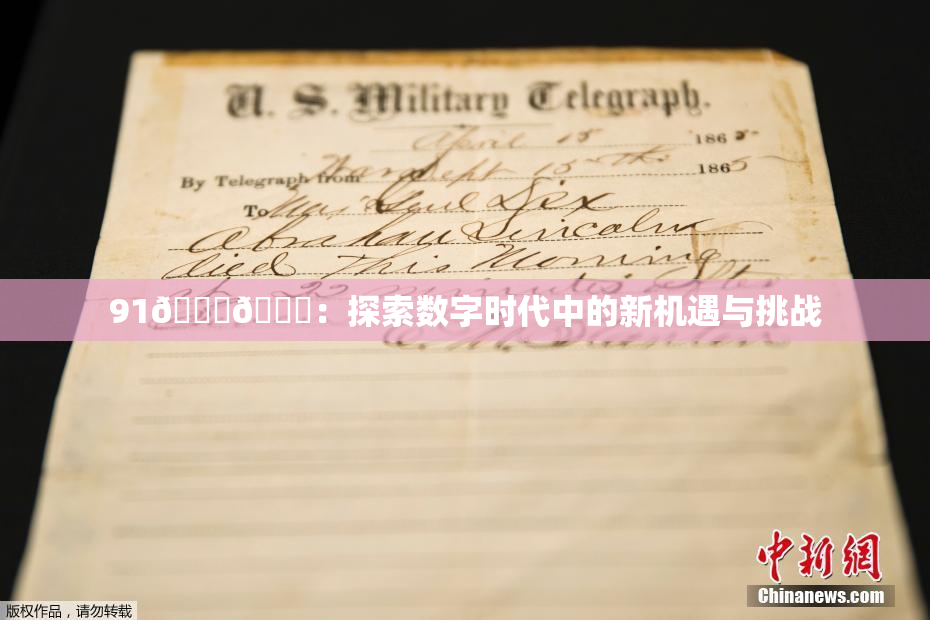 U. S. Military Telegraph.
April 15 1865
By Telegraph from War Dept 15th 1865
To Maj Genl Dix
Abraham Lincoln
died this Morning
at 22 minutes after
91ð：探索数字时代中的新机遇与挑战
中新网
Chinanews.com
版权作品，请勿转载